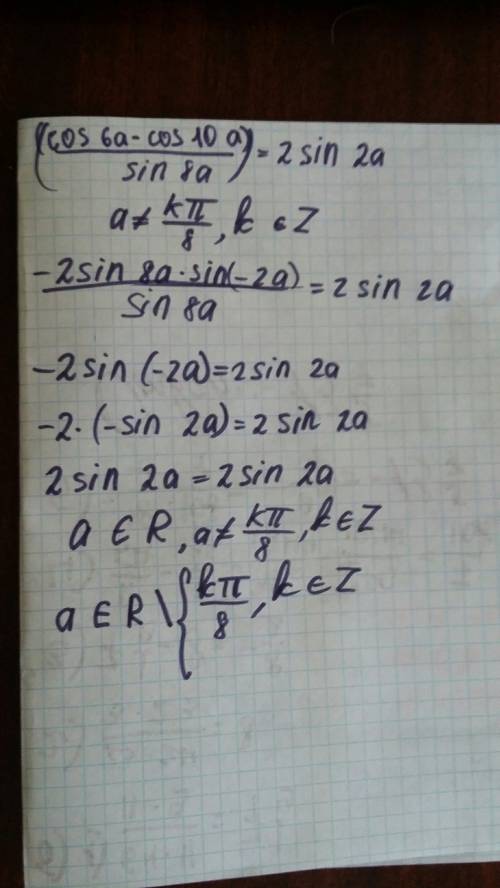 (cos 6a - cos 10 a)/(sin 8a) = 2 sin 2a
a ≠ kπ/8, k ∈ Z
-2sin 8a · sin(-2a)/sin 8a = 2 sin 2a
-2 sin (-2a) = 2 sin 2a
-2 · (-sin 2a) = 2 sin 2a
2 sin 2a = 2 sin 2a
a ∈ R, a ≠ kπ/8, k ∈ Z
a ∈ R \ { kπ/8, k ∈ Z